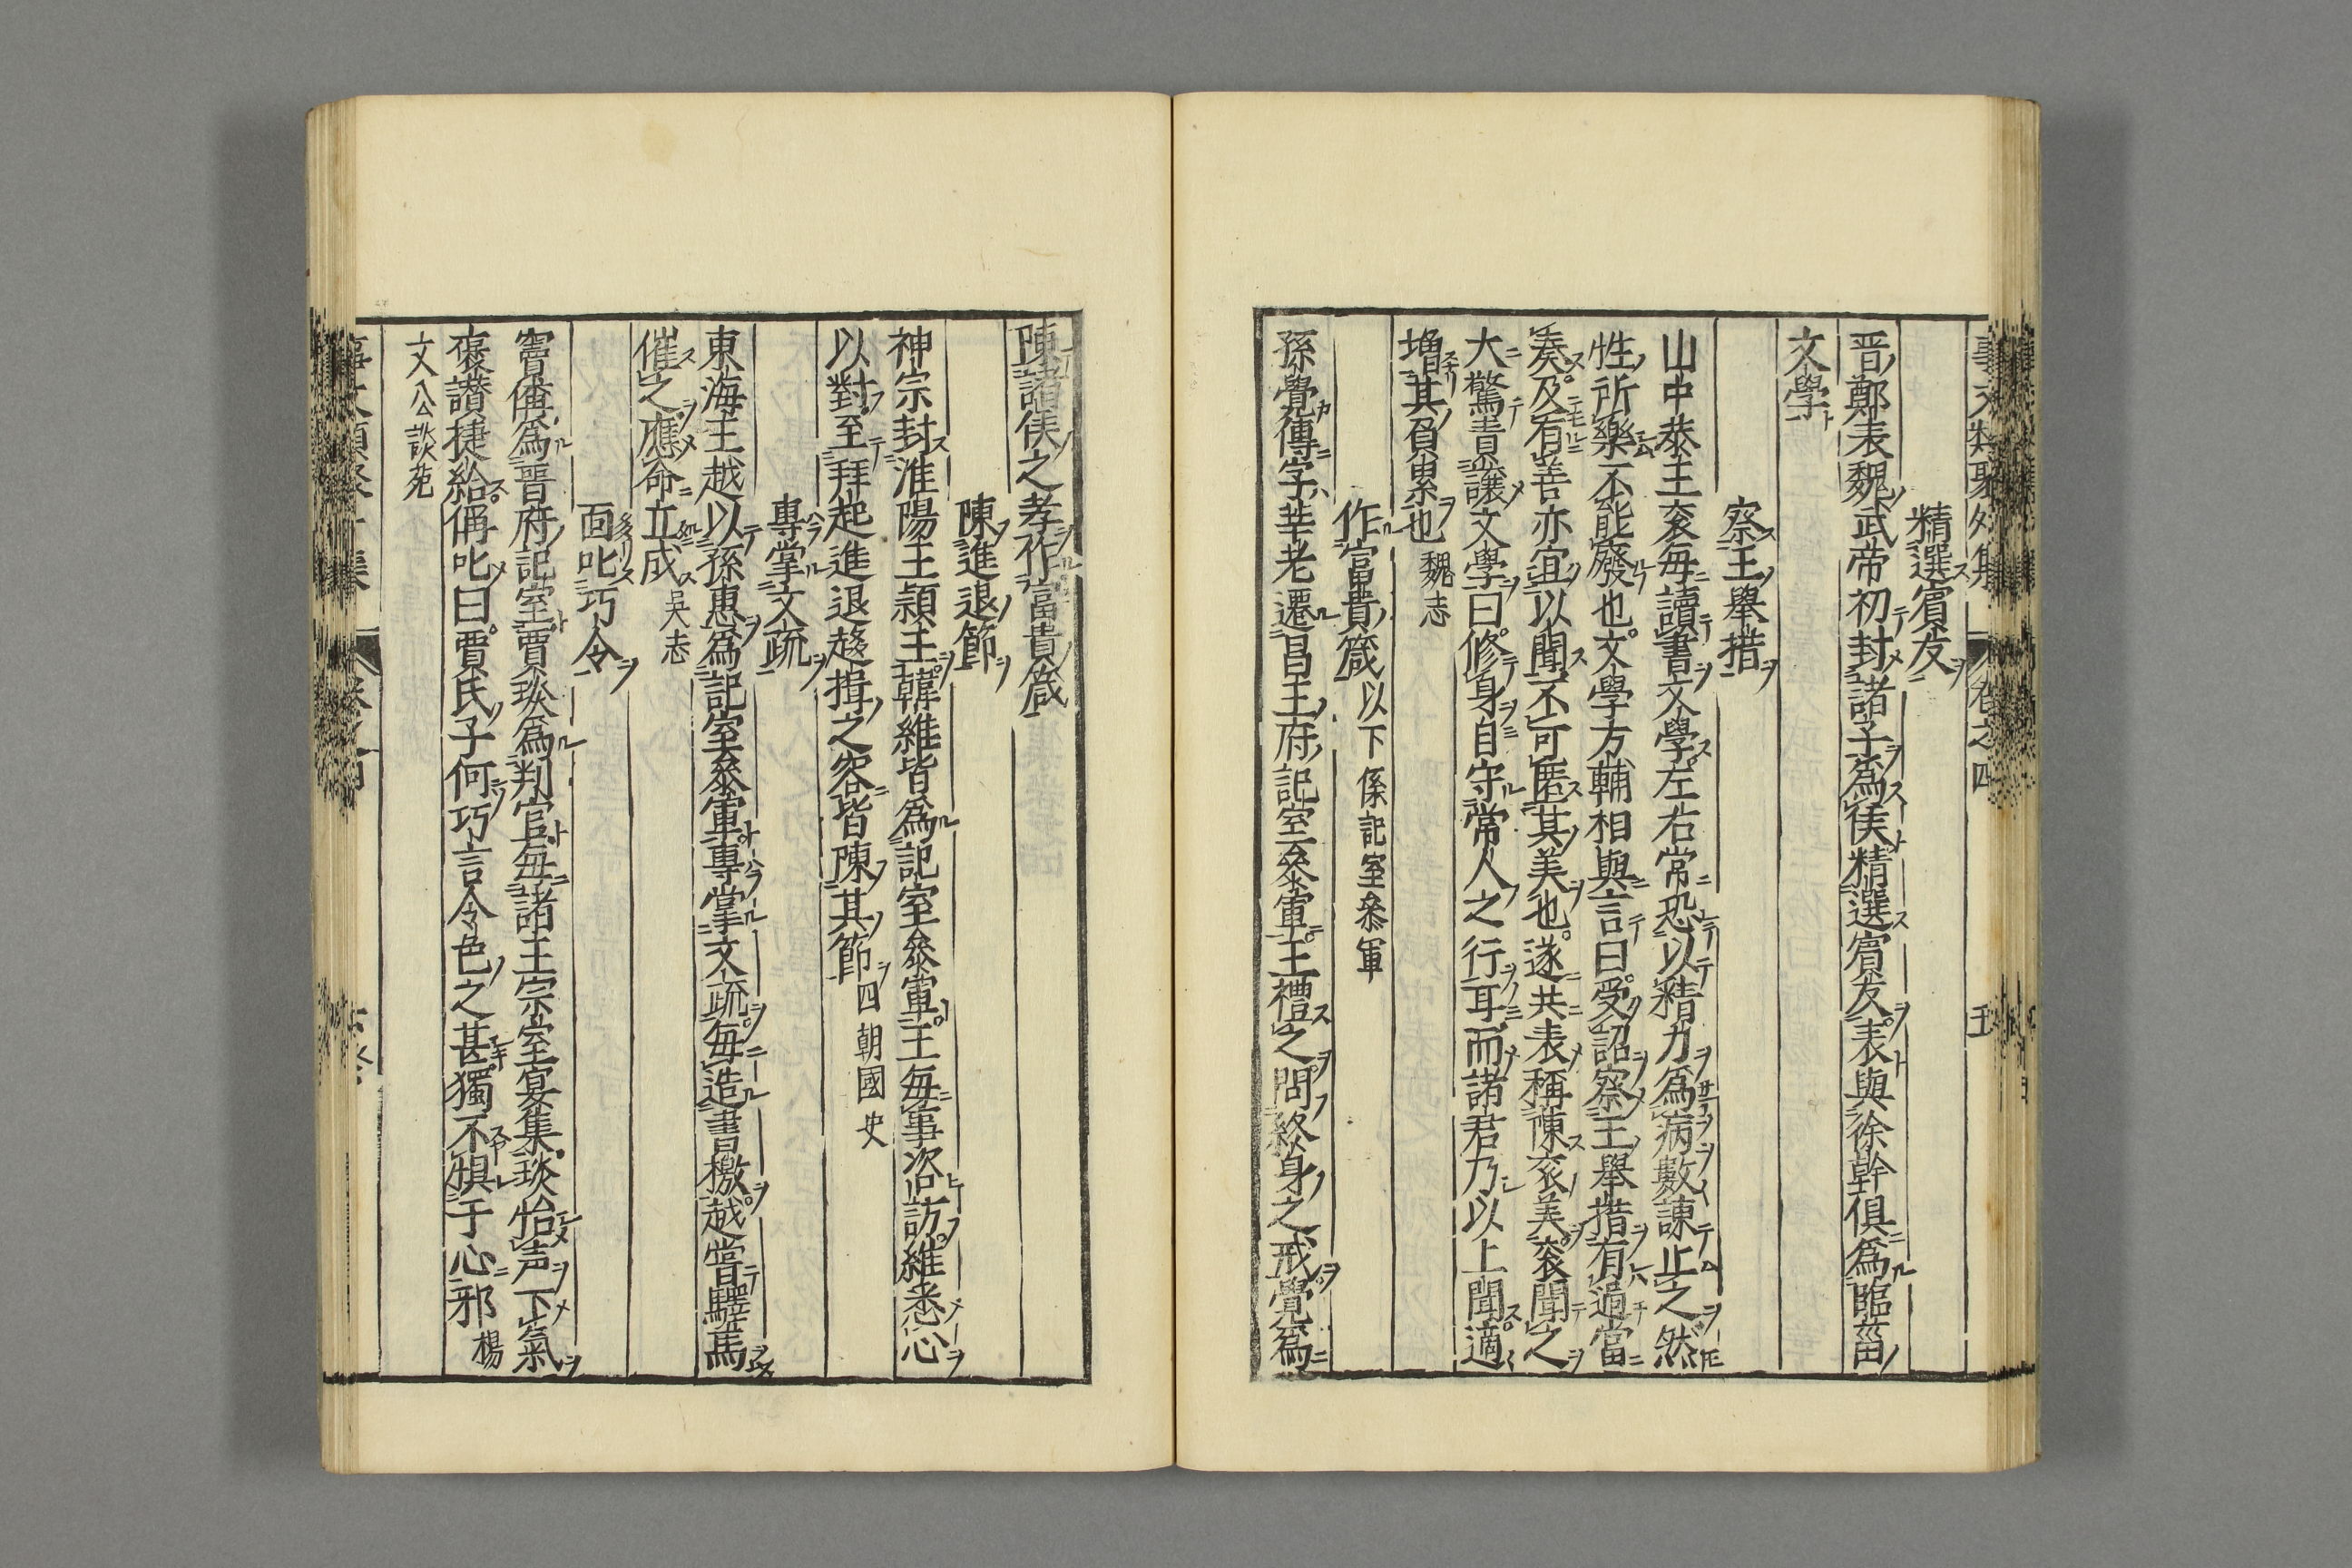 精選賓友
晉鄭袤魏武帝初封諸子爲侯精選賓友袤與徐幹俱爲臨菑
文學
察王舉措
山中恭王衮每讀書文學左右常恐以精力爲病數諫止之然
性所樂不能廢也文學方輔相與言曰受詔察王舉措有過當
奏及有善亦宜以聞不可匿其美也遂共表稱陳衮美衮聞之
大驚責讓文學曰修身自守常人之行耳而諸君乃以上聞適
增其負累也 魏志
作富貴箴 以下係記室叅軍
孫覺傳字莘老遷昌王府記室參軍王禮之問終身之戒覺爲
陳諸侯之孝作富貴箴
陳進退節
神宗封淮陽王潁王韓維皆爲記室參軍王每事咨訪維悉心
以對至拜起進退趨揖之容皆陳其節 四朝國史
專掌文疏
東海王越以孫惠爲記室參軍專掌文疏每造書檄越嘗驛馬
催之應命立成 吳志
面叱巧令
竇儀爲晋府記室賈琰爲判官每諸王宗室宴集琰怡声下氣
褒讃捷給偁叱曰賈氏子何巧言令色之甚獨不懼于心邪 楊
文公談苑